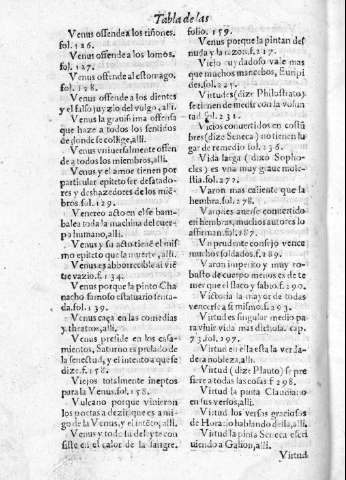 Tabla de las
Venus offende a los riñones.
fol. 126.
Venus offende a los lomos.
fol. 127.
Venus offende al estomago.
fol. 128.
Venus offende a los dientes
y el falso juyzio del vulgo, alli.
Venus la grauissima offensa
que haze a todos los sentidos
de donde se collige, alli.
Venus vniuersalmente offen
de a todos los miembros, alli.
Venus y el amor tienen por
particular epiteto ser desatado-
res y deshazedores de los miẽ-
bros fol. 129.
Venereo acto en el se bam-
balea toda la machina del cuer-
po humano, alli.
Venus y su acto tiene el mis
mo epiteto que la muerte, alli.
Venus es abborrecible al viẽ
tre vazio. f. 134.
Venus porque la pinto
nacho famoso estatuario senta-
da. fol. 139.
Venus caça en las comedias
y theatros, alli.
Venus preside en los casa-
mientos, Saturno es prelado de
la senectud, y el intento a que se
dize. f. 158.
Viejos totalmente ineptos
para la Venus. fol. 158.
Vulcano porque vinieron
los poetas a dezir que es ami-
go de la Venus, y el intẽto, alli.
Venus y todo su deleyte con
siste en el calor de la sangre.
folio. 159.
Venus porque la pintan des
nuda y la razon. f. 217.
Viejo cuydadoso vale mas
que muchos mancebos, Euripi
des. fol. 225.
Virtudes (dize Philostrato)
se tienen de medir con la volun
tad fol. 231.
Vicios conuertidos en costũ
bres (dize Seneca) no tienen lu
gar de remedio fol. 236.
Vida larga (dixo Sopho-
cles) es vna muy graue moles-
tia. fol. 272.
Varon mas caliente que la
hembra. fol. 278.
Varones auerse conuertido
en hembras, muchos autores lo
affirman. fol. 287.
Vn prudente consejo vence
muchos soldados. f. 289.
Varon imperito y muy ro-
busto de cuerpo menos es de te
mer que el flaco y sabio. f. 290.
Victoria la mayor de todas
vencerse a si mismo. f. 293.
Virtud es singular medio pa
ra viuir vida mas dichosa. cap.
73. fol. 297.
Virtud en ella esta la verda-
dera nobleza, alli.
Virtud (dize Plauto) se pre
fiere a todas las cosas f 298.
Virtud la pinta Claudiano
en sus versos, alli.
Virtud los versos graciosos
de Horacio hablando della, alli.
Virtud la pinta Seneca escri
uiendo a Galion, alli.
Virtud